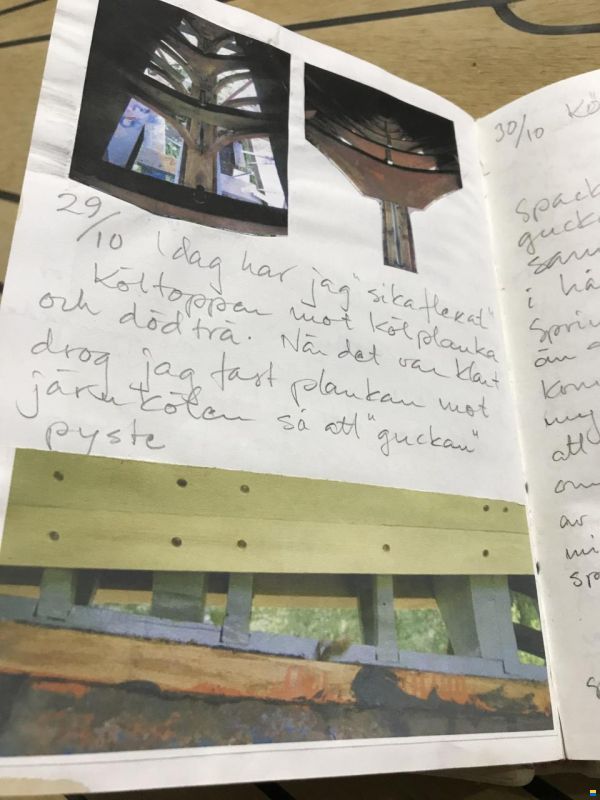 29/10 Idag har jag "sikaflexat"
költoppen mot kölplanka
och dödträ. När det var klart
drog jag fast plankan mot
järnkölen så att "guckan"
pyste
30/10
spack
guck
sam
i hå
Sprin
än
kom
my
att
om
av
mi
sp